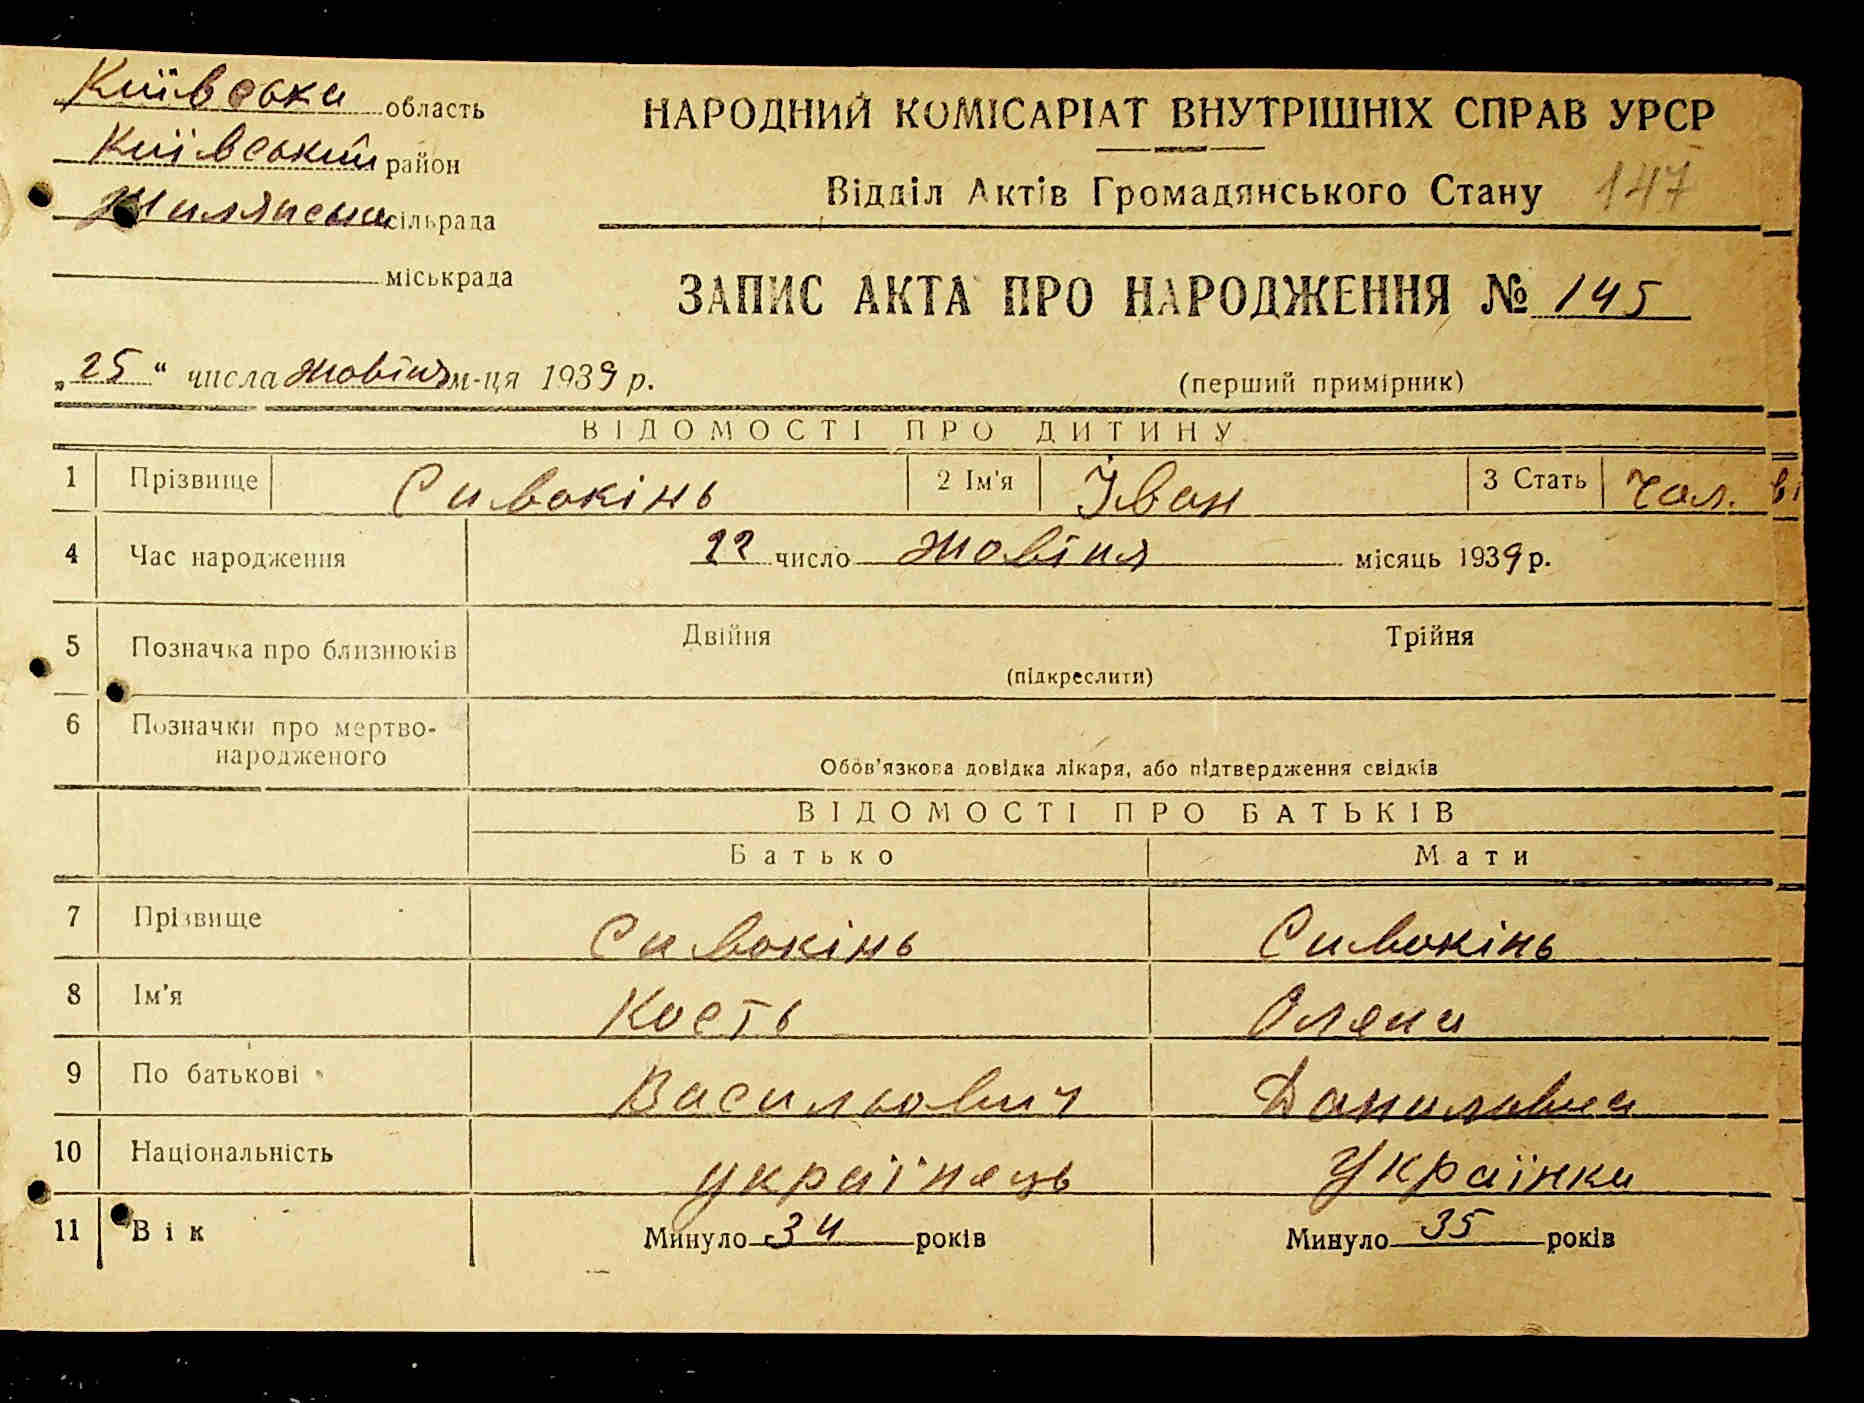 Київська область
Київський район
Жилянська сільрада
міськрада
НАРОДНИЙ КОМІСАРІАТ ВНУТРІШНІХ СПРАВ УРСР
Відділ Актів Громадянського Стану 147
ЗАПИС АКТА ПРО НАРОДЖЕННЯ № 145
„25“ числа жовтня м-ця 1939 р. (перший примірник)
ВІДОМОСТІ ПРО ДИТИНУ
1 Прізвище Сивокінь 2 Ім'я Іван 3 Стать чол.
4 Час народження 22 число жовтня місяць 1939 р.
5 Позначка про близнюків Двійня Трійня
(підкреслити)
6 Позначки про мертво-
народженого
Обов'язкова довідка лікаря, або підтвердження свідків
ВІДОМОСТІ ПРО БАТЬКІВ
Батько Мати
7 Прізвище Сивокінь Сивокінь
8 Ім'я Кость Оляна
9 По батькові Василькович Даниловна
10 Національність українець Українка
11 Вік Минуло 34 років Минуло 35 років